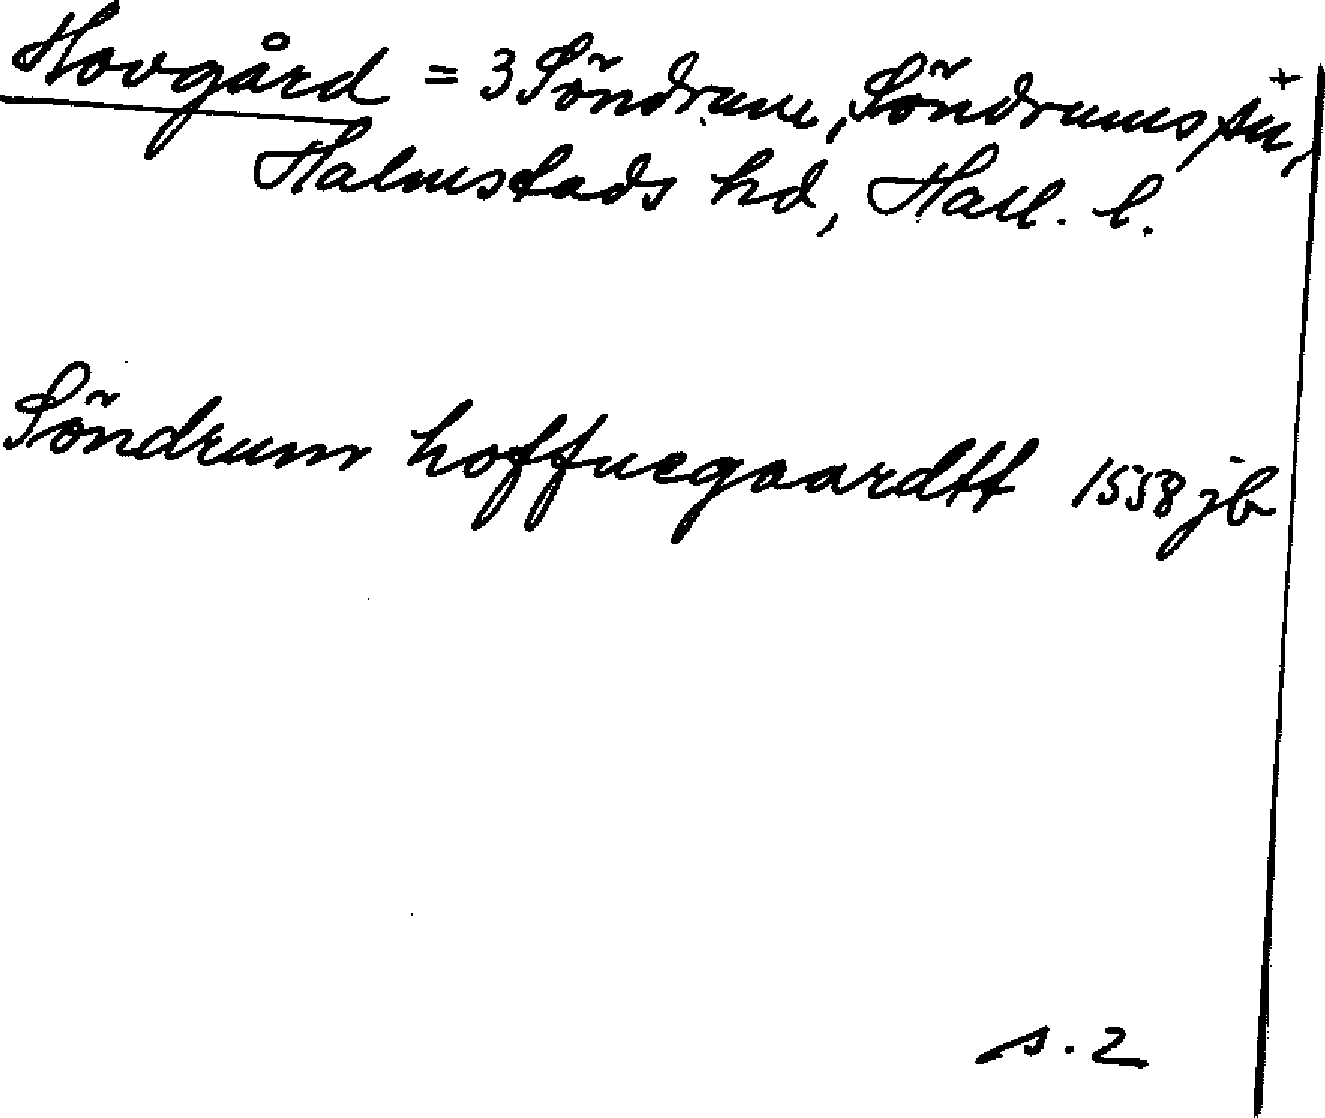 Hovgård = 3 Söndrum, Söndrums sn, +
Halmstads hd, Hall. l.
Söndrum hoffuegaardtt 1558 jb
s. 2